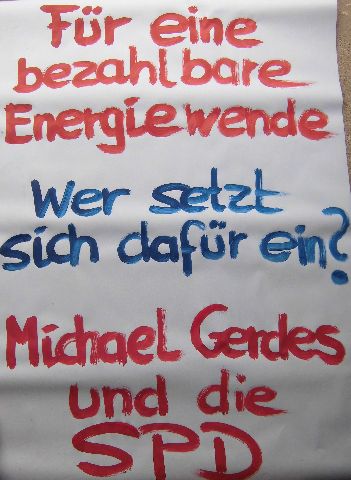 Für eine
bezahlbare
Energiewende
Wer setzt
sich dafür ein?
Michael Gerdes
und die
SPD